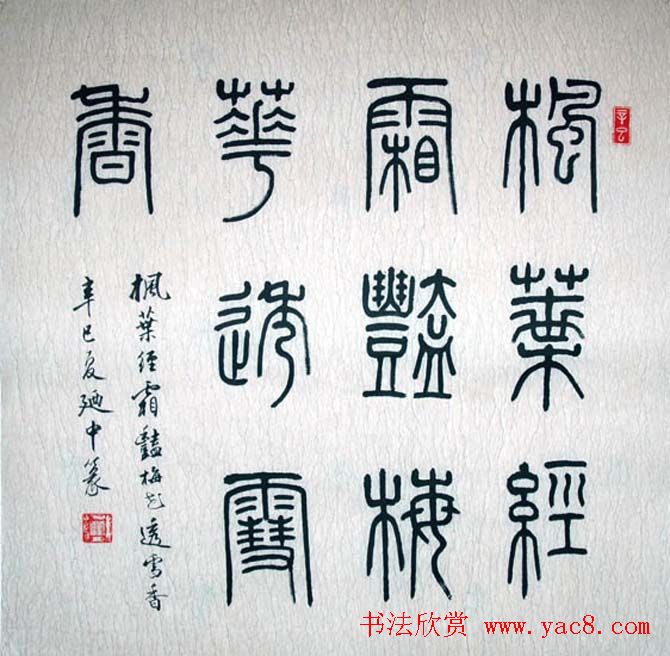 楓葉經
霜豔梅
華透雪
香
楓葉經霜豔梅花透雪香
辛巳夏廼中篆
辛巳
书法欣赏 www.yac8.com